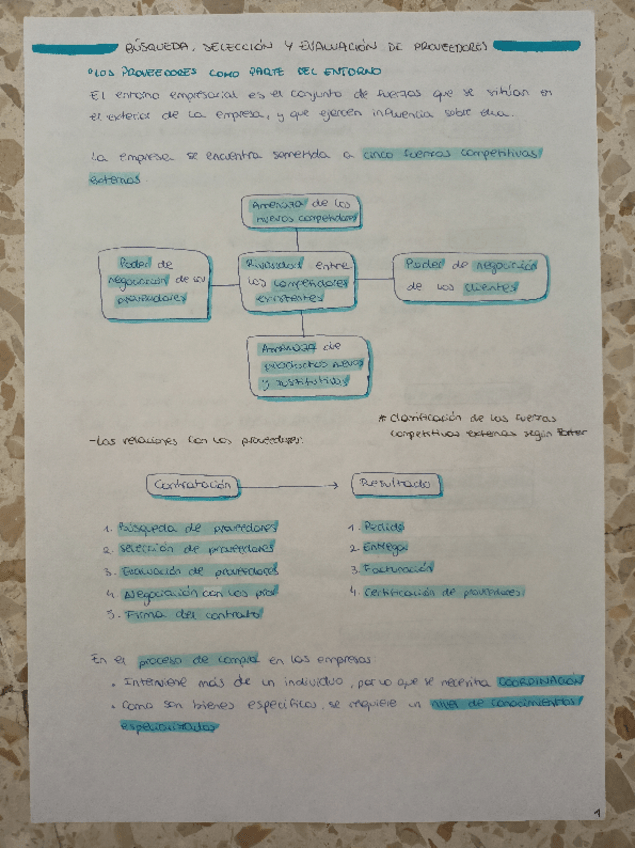 BÚSQUEDA, SELECCIÓN Y EVALUACIÓN DE PROVEEDORES
LOS PROVEEDORES COMO PARTE DEL ENTORNO
El entorno empresarial es el conjunto de fuerzas que se sitúan en
el exterior de la empresa, y que ejercen influencia sobre ella.
La empresa se encuentra sometida a cinco fuerzas competitivas
externas.
Amenaza de los
nuevos competidores
Poder de
negociación de los
proveedores
Rivalidad entre
los competidores
existentes
Poder de negociación
de los clientes
Amenaza de
productos nuevos
y sustitutivos
* Clasificación de las fuerzas
competitivas externas según Porter
-Las relaciones con los proveedores:
Contratación
Resultado
1. Búsqueda de proveedores
2. Selección de proveedores
3. Evaluación de proveedores
4. Negociación con los prov
5. Firma del contrato
1. Pedido
2. Entrega
3. Facturación
4. Certificación de proveedores
En el proceso de compra en las empresas
• Interviene más de un individuo, por lo que se necesita COORDINACIÓN
• Como son bienes específicos, se requiere un nivel de conocimientos
especializados
1